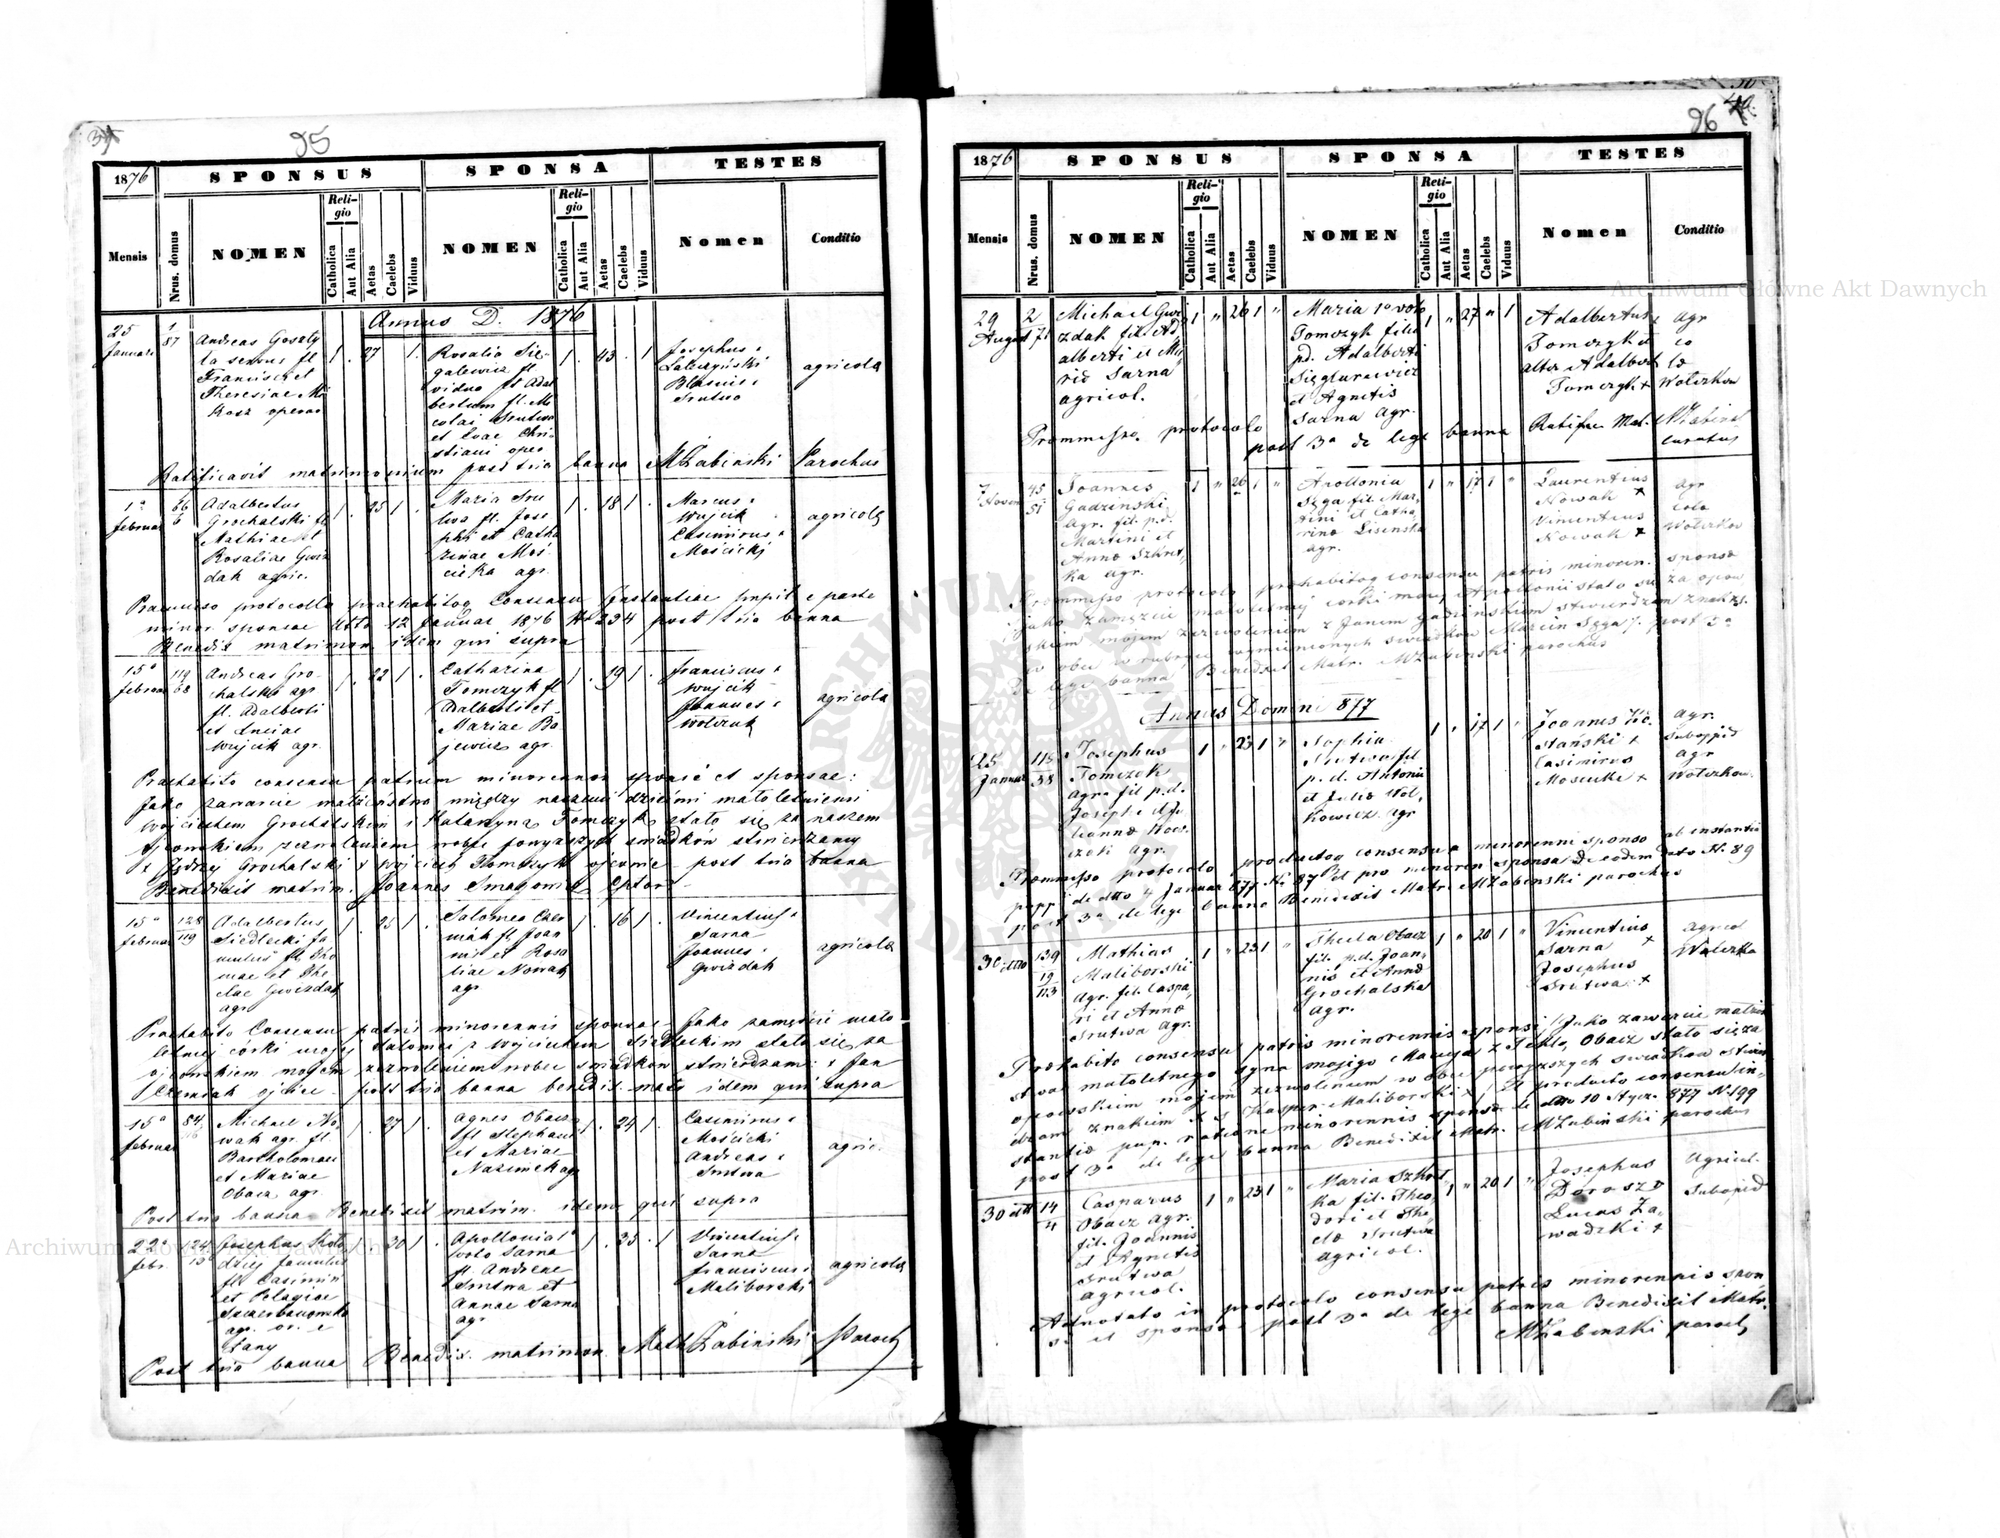 95
1876
SPONSUS
SPONSA
TESTES
Mensis
Nrus. domus
NOMEN
Religio
Catholica
Aut Alia
Aetas
Caelebs
Viduus
NOMEN
Religio
Catholica
Aut Alia
Aetas
Caelebs
Viduus
Nomen
Conditio
Annus D. 1876
25
Januar
1
87
Andreas
servus fil
Francisci et
Theresiae
1 . 27 1.
Rosalia
vidua
et Evae Chri
stiani
1 . 43 . 1
Josephus
Blasius
Srutwa
agricola
Ratificavit matrimonium post tria banna MŻabinski Parochus
1a
februar
66
6
Adalbertus
Grochalski fl
Mathiae et
Rosaliae Gwiz
dak agric.
1 . 25 1 .
Maria Sru
twa fl. Jose
phi et Catha
rinae Moś
cicka agr.
1 . 18 1 .
Marcus
Wujcik
Casimirus
Mościcki
agricola
Praemisso protocollo praehabitoq Consensu Instantiae pupil e parte
minor. sponsae ddto 12 Januar 1876 N 234 post tria banna
Benedix matrimon idem qui supra
15a
februar
119
68
Andreas Gro
chalski agr
fl. Adalberti
et Luciae
Wujcik agr.
1 . 22 1 .
Catharina
Tomczyk fl
Adalberti et
Mariae Ba
jewicz agr.
1 . 19 1 .
Franciscus
Wujcik
Joannes
Wolczuk
agricola
Praehabito consensu patrum minorennor sponsi et sponsae:
Jako zawarcie małżeństwa między naszemi dziećmi małoletniemi
Wojciechem Grochalskim i Katarzyną Tomczyk stało się za naszem
ojcowskiem zezwoleniem wobec powyższych świadków stwierdzamy
+ Jędrzej Grochalski + Wojciech Tomczyk ojcowie post tria banna
Benedixit matrim. Joannes
15a
februar
128
119
Adalbertus
Siedlecki fa
mulus fl Tho
mae et The
clae Gwizdak
agr
1 . 25 1 .
Salomea Czer
niak fl Joan
nis et Rosa
liae Nowak
agr
1 . 16 1 .
Vincentius
Sarna
Joannes
Gwizdak
agricola
Praehabito Consensu patris minorennis sponsae Jako zamęście mało
letniej córki mojej Salomei z Wojciechem Siedleckim stało się za
ojcowskiem mojem zezwoleniem wobec świadków stwierdzam: + Jan
Czerniak ojciec. post tria banna benedix. matr idem qui supra
15a
februar
84
Michael No
wak agr. fl
Bartholomaei
et Mariae
Obacz agr.
1 . 27 1 .
Agnes Obacz
fl Stephani
et Mariae
1 . 24 1 .
Casimirus
Mościcki
Andreas
Srutwa
agric.
Post tria banna Benedixit matrim. idem qui supra
22a
febr.
24
Josephus Koło
dziej famulus
fl Casimiri
et Pelagiae
agr.
1 . 30 1 .
Apollonia 1o
voto Sarna
fl. Andreae
Srutwa et
Annae Sarna
agr
1 . 35 . 1
Vincentius
Sarna
Franciscus
Maliborski
agricola
Post tria banna Benedix. matrimon. Math Żabinski Paroch
96
1876
SPONSUS
SPONSA
TESTES
Mensis
Nrus. domus
NOMEN
Religio
Catholica
Aut Alia
Aetas
Caelebs
Viduus
NOMEN
Religio
Catholica
Aut Alia
Aetas
Caelebs
Viduus
Nomen
Conditio
29
August
2
71
Michael Gwi
zdak fil. Ad
alberti et Ma
riæ Sarna
agricol.
1 " 26 1 "
Maria 1o voto
Tomczyk filia
p.d. Adalberti
et Agnetis
Sarna Agr.
1 " 27 " 1
Adalbertus +
Tomczyk et
alter Adalbert
Tomczyk +
agr
co
læ
Wolczkow
Præmisso protocolo post 3a de lege banna Ratific Mat. MŻabinski
curatus
7
Novem
45
51
Joannes
Gadzinski
agr. fil. p.d.
Martini et
Annæ Szkrat
ka agr.
1 " 26 1 "
Apollonia
Sega fil. Mar
tini et Catha
rinæ Lisinska
agr.
1 " 17 1 "
Laurentius
Nowak +
Vincentius
Nowak +
agr
colæ
Wolczkow
Præmisso protocolo præhabitoq consensu patris minoren. sponsæ
jako zamęście małoletniej córki mojej Apollonii stało się za ojcow
skiem mojem zezwoleniem z Janem Gadzińskim stwierdzam znakiem
w obec w rubryce wymienionych świadków Marcin Sęga post 3a
de lege banna Benedixit Matr. MŻabinski parochus
Annus Domini 877
25
Januar
115
38
Josephus
Tomczek
agr. fil p.d.
Josephi et Ju
liannæ
agr.
1 " 23 1 "
Sophia
Srutwa fil
p.d. Antonii
et Juliæ Wol
kowicz agr
1 " 17 1 "
Joannes
Casimirus
Moscicki +
agr.
Suboppid
agr
Wolczkow
Præmisso protocolo productoq consensu a minorenni sponso ab instantia
pupp de dtto 4 Januar 877 N. 87 et pro minoren sponsa de eodem dato N. 89
post 3a de lege banna Benedixit Matr. MŻabinski parochus
30 dtto
139
19
113
Mathias
Maliborski
Agr. fil. Caspa
ri et Annæ
Srutwa Agr.
1 " 23 1 "
Thecla Obacz
fil. p.d. Joan
nis et Annæ
Grochalska
Agr.
1 " 20 1 "
Vincentius
Sarna +
Josephus
Srutwa +
agricol
Wolczko
Præhabito consensu patris minorennis sponsi /: Jako zawarcie małżeń
stwa małoletniego syna mojego Macieja z Teklą Obacz stało się za
ojcowskiem mojem zezwoleniem w obec powyższych świadków stwier
dzam znakiem + Kasper Maliborski + et producto consensu in
stantiæ pup. ratione minorennis sponsæ de dtto 10 Stycz. 877 N. 199
post 3a de lege banna Benedixit Matr. MŻabinski parochus
30 dtto
14
4
Casparus
Obacz agr.
fil. Joannis
et Agnetis
Srutwa
agricol.
1 " 23 1 "
Maria Szkrat
ka fil. Theo
dori et The
clæ Srutwa
agricol.
1 " 20 1 "
Josephus
Dorosz
Lucas Za
wadzki +
Agricol.
Suboppid
Adnotato in protocolo consensu patris minorennis spon
si et sponsæ post 3a de lege banna Benedixit Matr.
MŻabinski paroch
Archiwum Główne Akt Dawnych
Archiwum Główne Akt Dawnych
ARCHIWUM GŁÓWNE AKT DAWNYCH